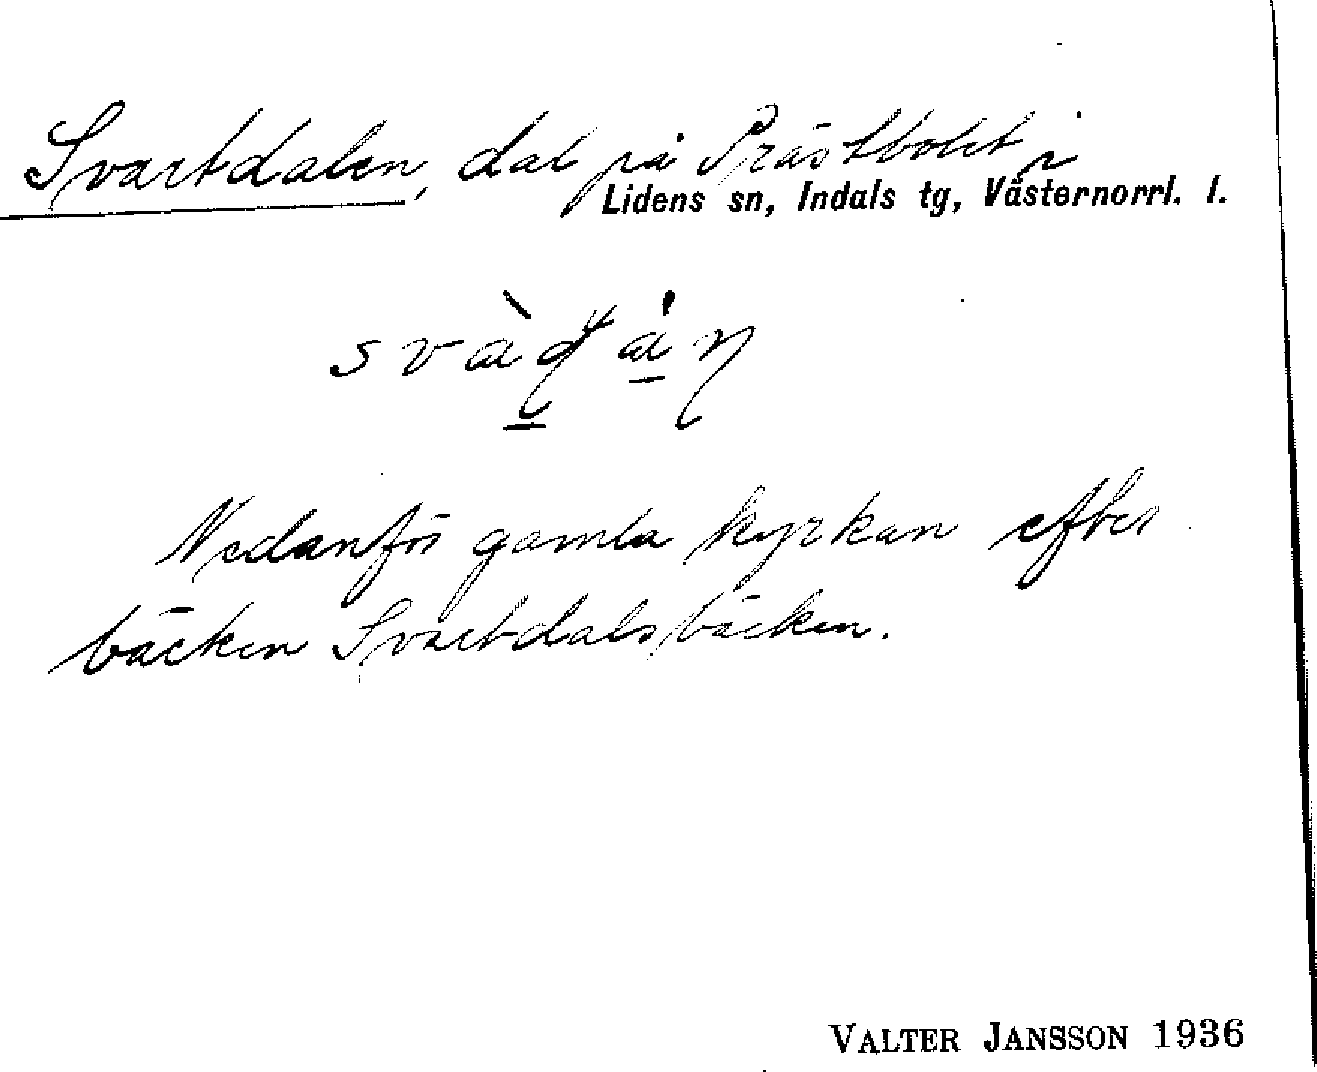 Svartdalen, dal på Prästbolet i
Lidens sn, Indals tg, Västernorrl. l.
Nedanför gamla kyrkan efter
bäcken Svartdalsbäcken.
VALTER JANSSON 1936